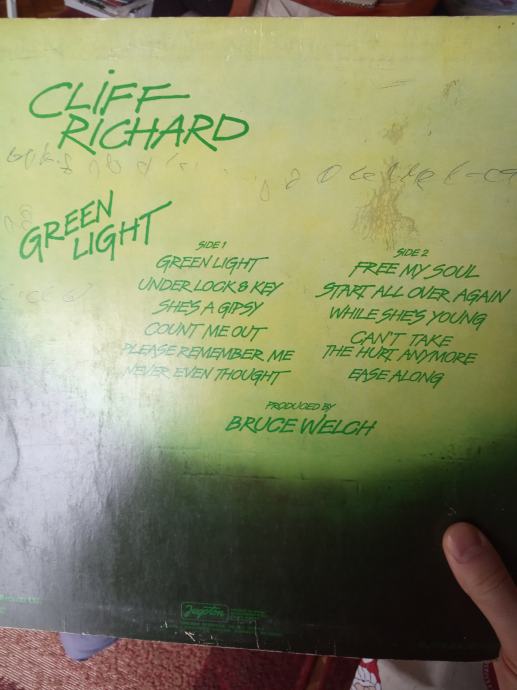 CLIFF
RICHARD
GREEN
LIGHT
SIDE 1
GREEN LIGHT
UNDER LOCK & KEY
SHE'S A GIPSY
COUNT ME OUT
PLEASE REMEMBER ME
NEVER EVEN THOUGHT
SIDE 2
FREE MY SOUL
START ALL OVER AGAIN
WHILE SHE'S YOUNG
CAN'T TAKE
THE HURT ANYMORE
EASE ALONG
PRODUCED BY
BRUCE WELCH
Jugoton